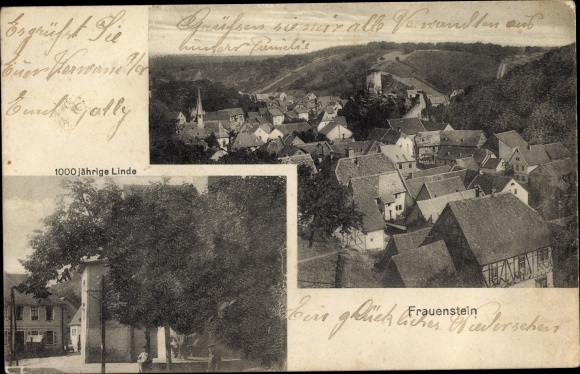 Es grüßt Sie
Euer Verwandter
Emil Gally
Grüssen sie mir all Verwandten aus
unsere Familie
1000 jährige Linde
Frauenstein
Ein glückliches Wiedersehen